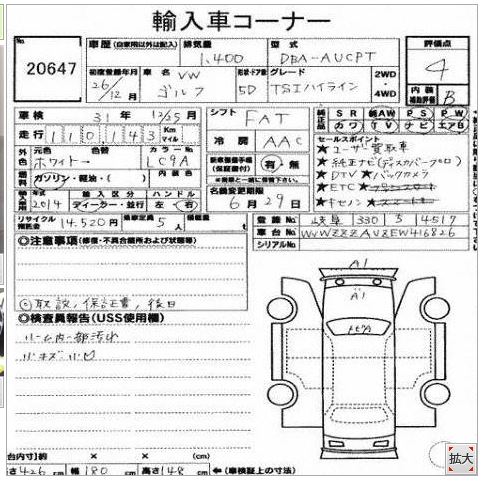 輸入車コーナー
No. 20647
車歴 (自家用以外は記入) 排気量 1,400 型式 DBA-AUCPT 評価点 4
初度登録年月 26/12月 車名 VW ゴルフ 形状・ドア数 5D グレード TSIハイライン 2WD・4WD 内装補助評価 B
車検 31年 12/05月 シフト FAT 純正品 SR 純AW PS PW カワ TV ナビ エアB
走行 110,143 Km マイル 冷房 AAC セールスポイント
★ユーザー買取車
外色 元色 ホワイト 色替 カラーNo. LC9A 新車整備手帳(保証書付) 有・無
★純正ナビ(ディスカバープロ)
燃料 ガソリン・軽油・( ) 内装色
★DTV ★バックカメラ
★ETC
輸入車用 年式 2014 輸入区分 ディーラー・並行 ハンドル 左 右 名義変更期限 6月29日
★キセノン
リサイクル預託金 14,520円 乗車定員 5人 積載量 t
登録No. 岐阜 330 す 4517
車台No. WVWZZZAUZEW416826
シリアルNo.
◎注意事項(修復・不具合箇所および状態等)
◎取説、保証書、後日
◎検査員報告(USS使用欄)
ルーム内一部汚れ
小キズ小凹
A1
A1
台内寸約 × × (cm)
長さ 426cm 幅 180cm 高さ 148cm ←(車検証上の寸法)
拡大